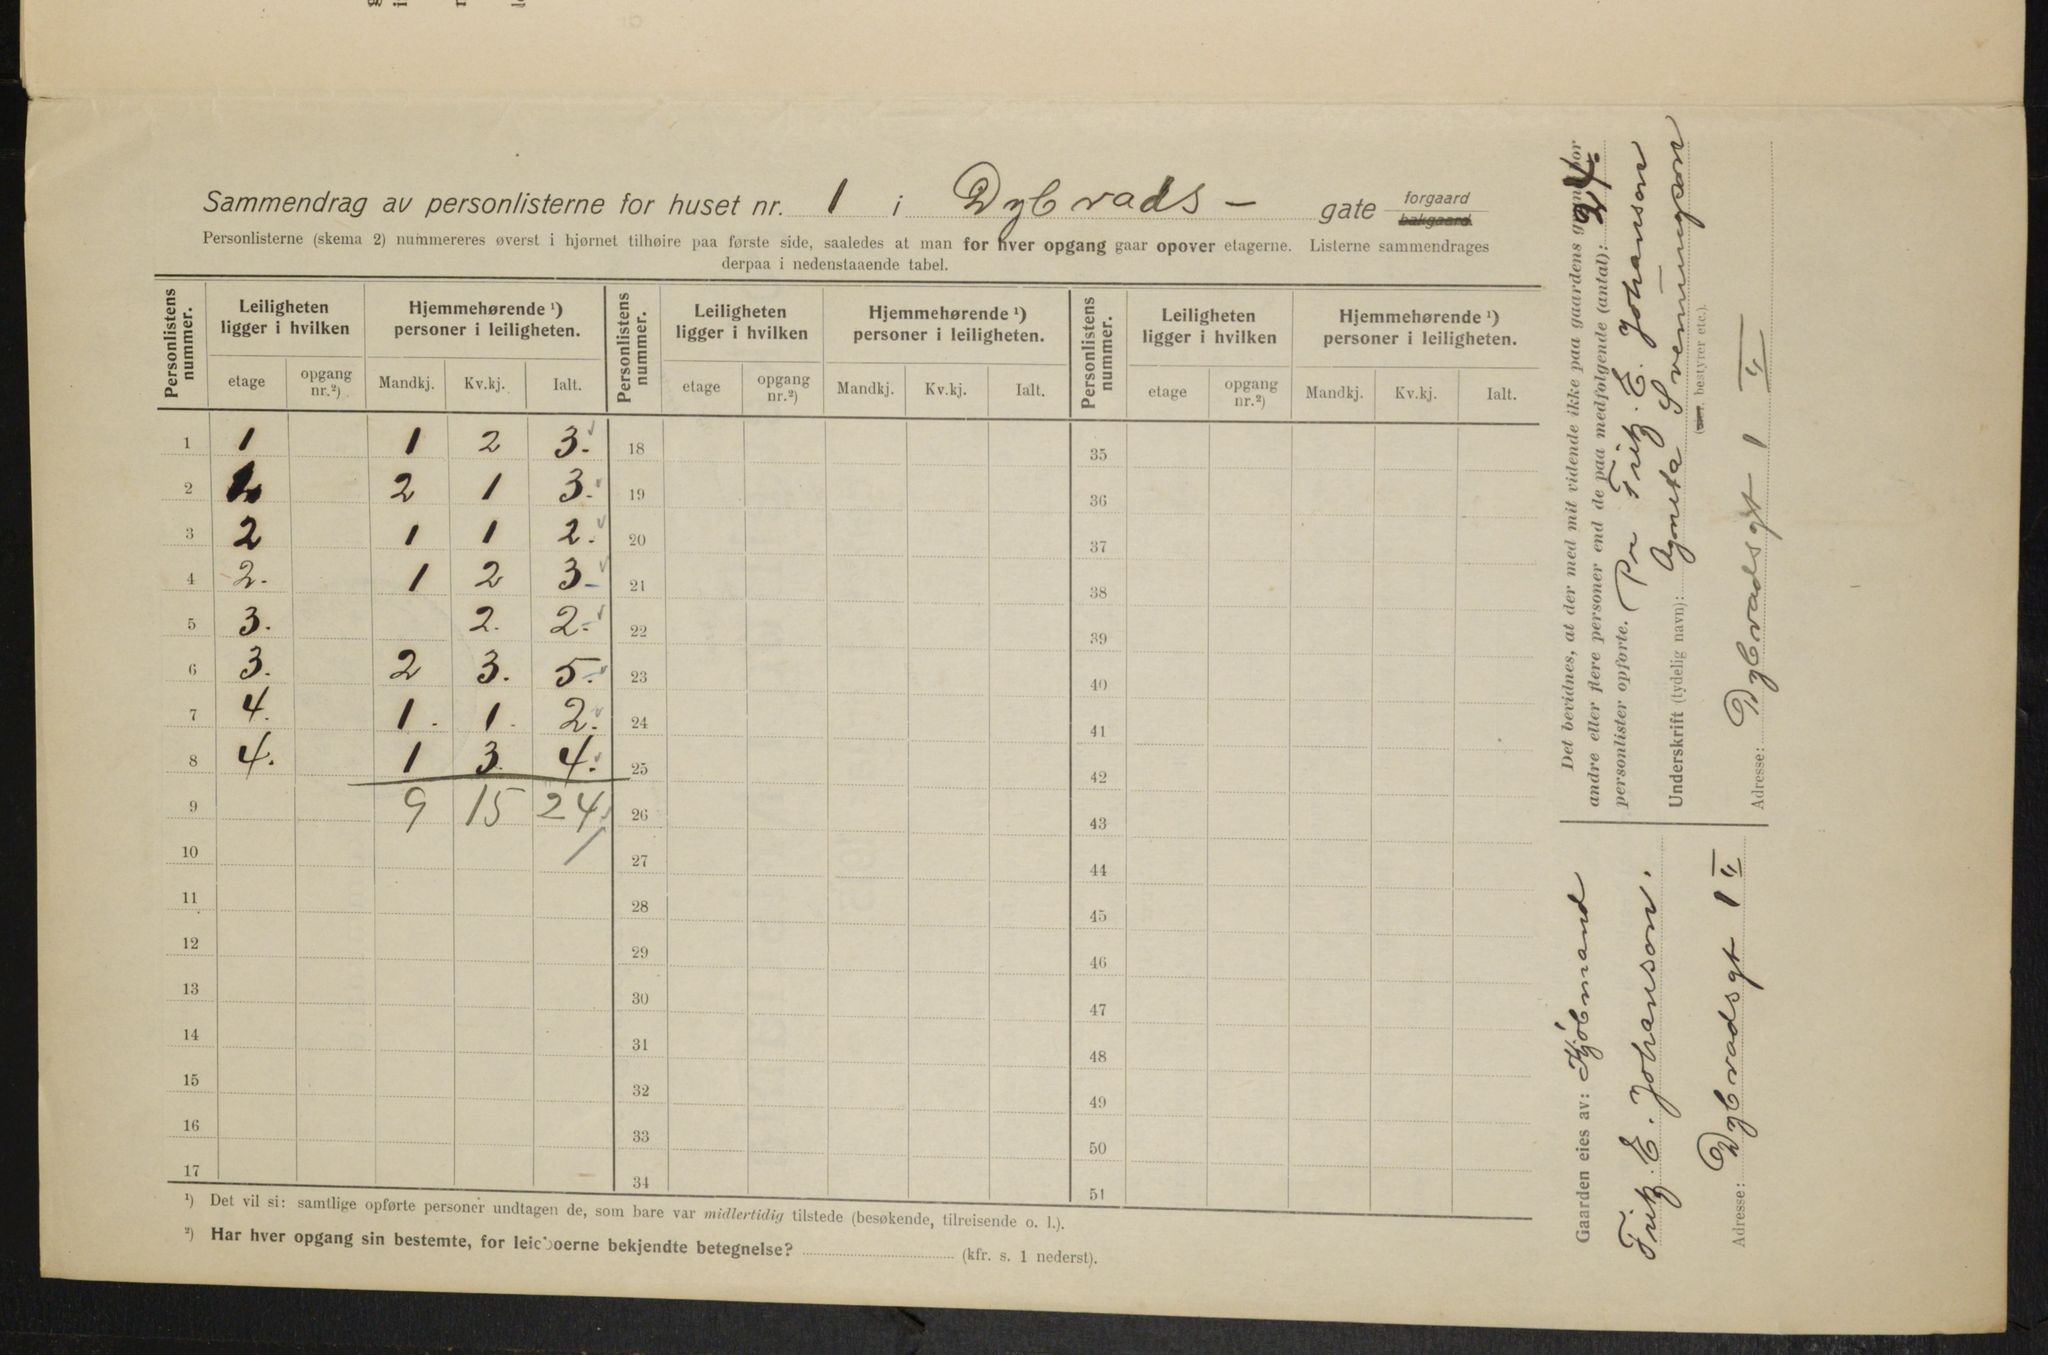 Sammendrag av personlisterne for huset nr. 1 i Dybvads - gate forgaard bakgaard
Personlisterne (skema 2) nummereres øverst i hjørnet tilhøire paa første side, saaledes at man for hver opgang gaar opover etagerne. Listerne sammendrages
derpaa i nedenstaaende tabel.
Personlistens nummer. Leiligheten ligger i hvilken Hjemmehørende ¹) personer i leiligheten. Personlistens nummer. Leiligheten ligger i hvilken Hjemmehørende ¹) personer i leiligheten. Personlistens nummer. Leiligheten ligger i hvilken Hjemmehørende ¹) personer i leiligheten.
etage opgang nr.²) Mandkj. Kv.kj. Ialt. etage opgang nr.²) Mandkj. Kv.kj. Ialt. etage opgang nr.²) Mandkj. Kv.kj. Ialt.
1 1 1 2 3. 18 35
2 2 1 3. 19 36
3 2 1 1 2. 20 37
4 2. 1 2 3- 21 38
5 3. 2. 2- 22 39
6 3. 2 3. 5. 23 40
7 4. 1. 1. 2. 24 41
8 4. 1 3. 4. 25 42
9 9 15 24 26 43
10 27 44
11 28 45
12 29 46
13 30 47
14 31 48
15 32 49
16 33 50
17 34 51
¹) Det vil si: samtlige opførte personer undtagen de, som bare var midlertidig tilstede (besøkende, tilreisende o. l.).
²) Har hver opgang sin bestemte, for leieboerne bekjendte betegnelse? (kfr. s. 1 nederst).
Det bevidnes, at der med mit vidende ikke paa gaardens grund bor
andre eller flere personer end de paa medfølgende (antal): 24.
personlister opførte. Pr Fritz. E. Johanson
Underskrift (tydelig navn): Agneta Svenningson
(eier, bestyrer etc.).
Adresse: Dybvadsgt 1 II
Gaarden eies av: Kjøbmand
Fritz. E. Johanson.
Adresse: Dybvadsgt 1 II